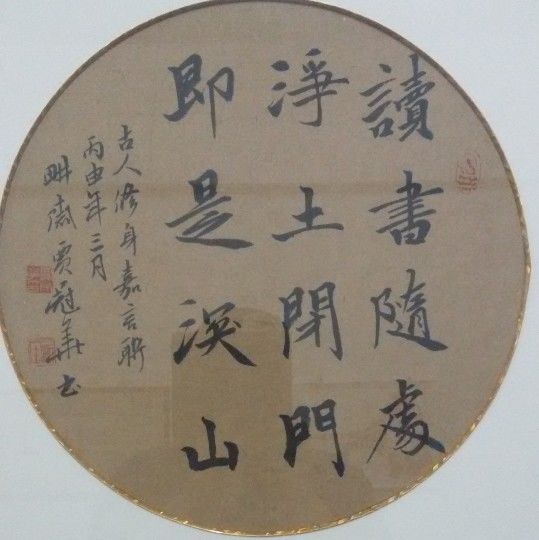 讀書隨處
淨土閉門
即是深山
古人修身嘉言聯
丙申年三月
畊 賈冠華书